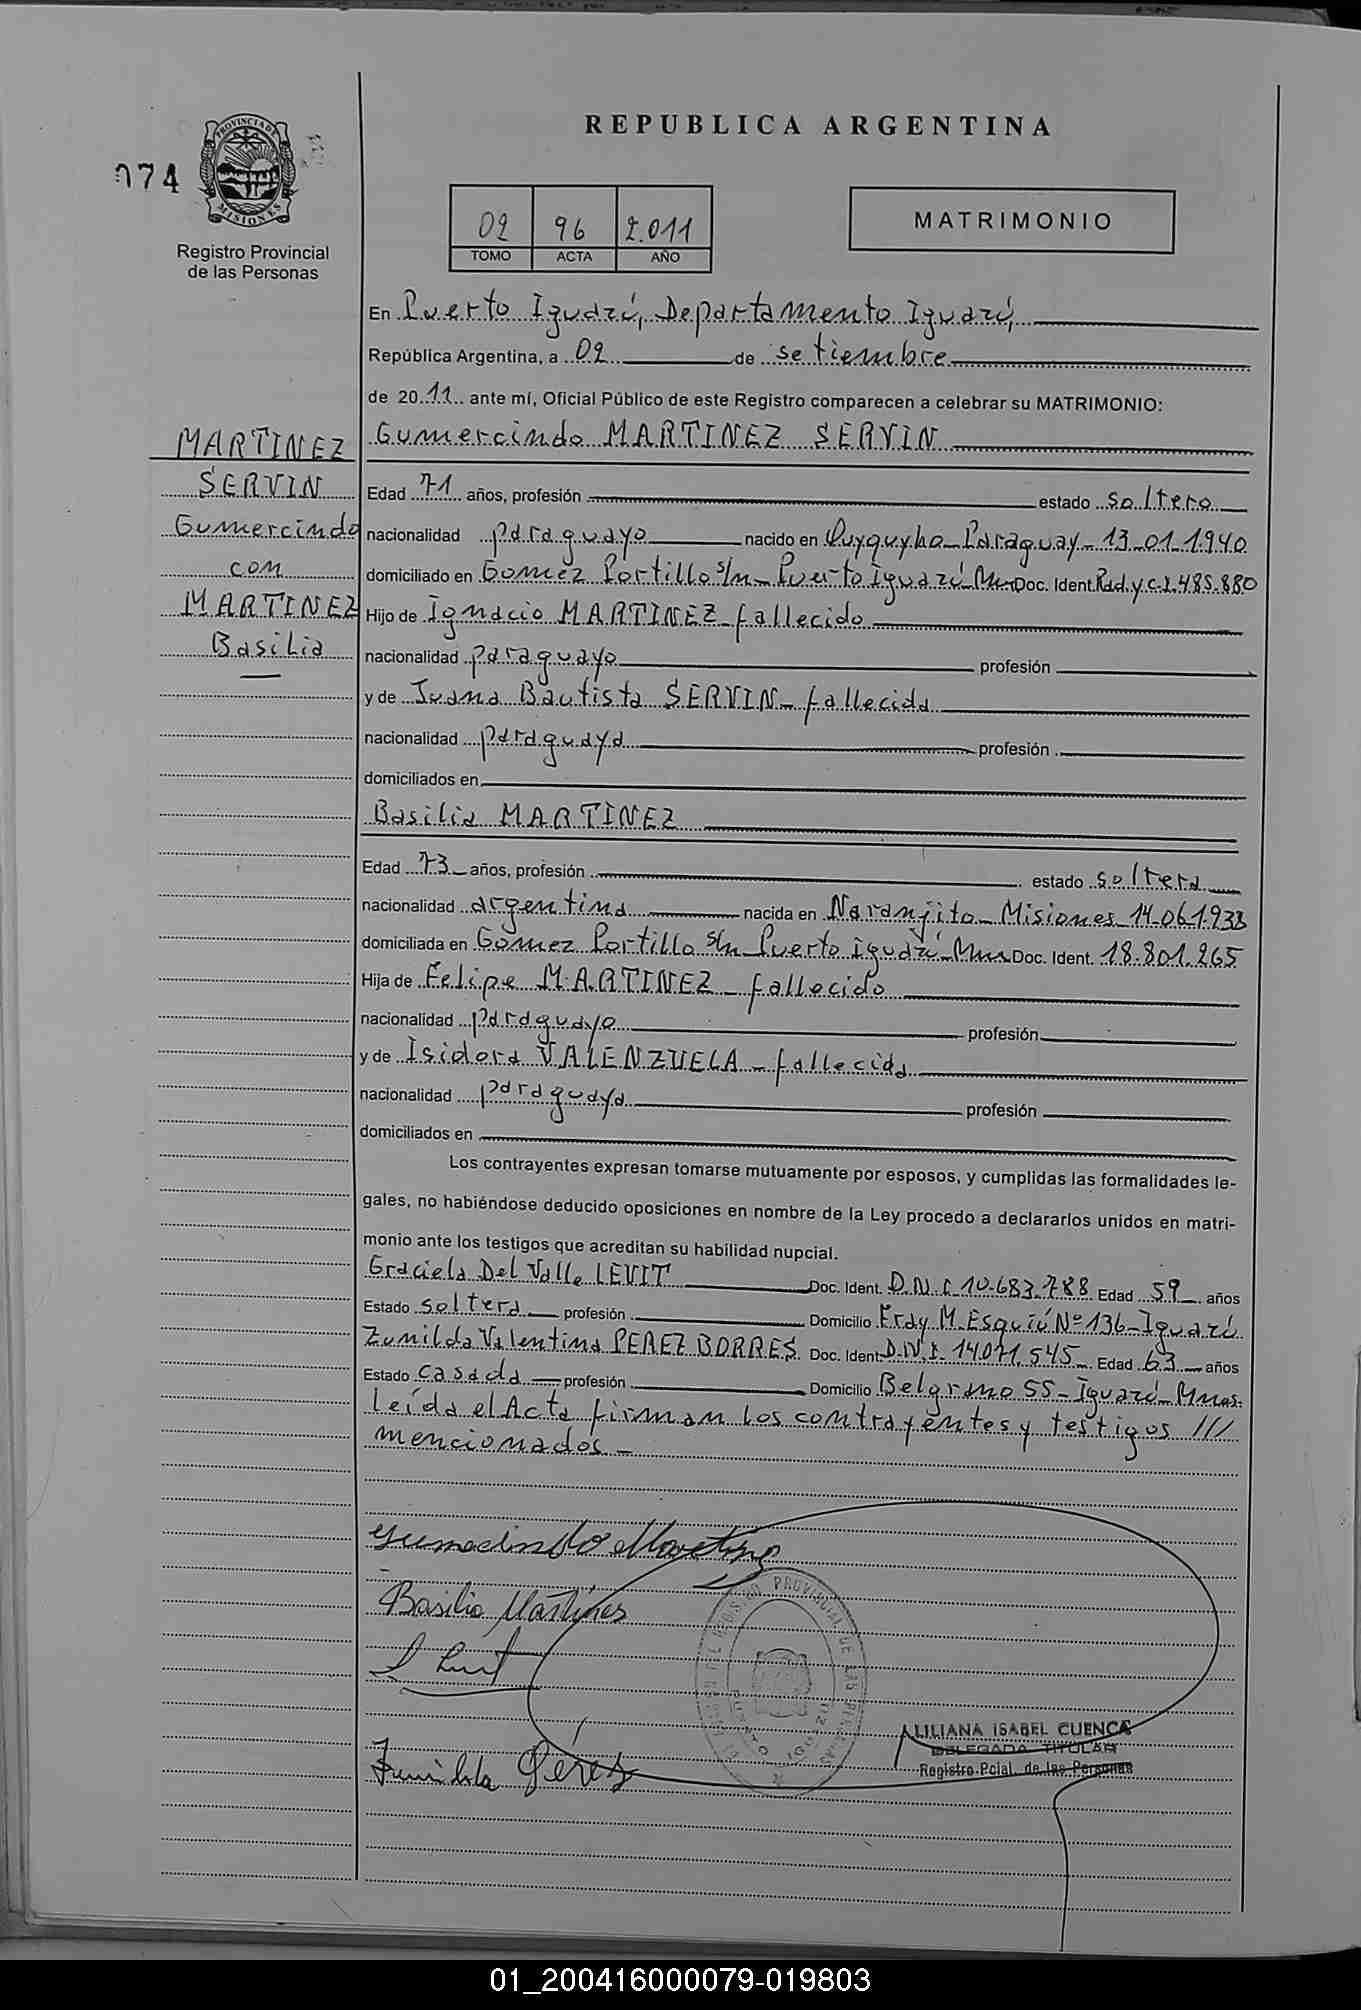 REPUBLICA ARGENTINA
074
PROVINCIA DE
MISIONES
Registro Provincial
de las Personas
02 96 2.011
TOMO ACTA AÑO
MATRIMONIO
En Puerto Iguazú, Departamento Iguazú,
República Argentina, a 02 de setiembre
de 2011 ante mí, Oficial Público de este Registro comparecen a celebrar su MATRIMONIO:
MARTINEZ
SERVIN
Gumercindo
con
MARTINEZ
Basilia
Gumercindo MARTINEZ SERVIN
Edad 71 años, profesión estado soltero
nacionalidad paraguayo nacido en Quyquyho - Paraguay - 13-01-1.940
domiciliado en Gomez Portillo s/n - Puerto Iguazú - Mnes Doc. Ident. Rad. y C.I. 485.880
Hijo de Ignacio MARTINEZ - fallecido
nacionalidad paraguayo profesión
y de Juana Bautista SERVIN - fallecida
nacionalidad paraguaya profesión
domiciliados en
Basilia MARTINEZ
Edad 73 años, profesión estado soltera
nacionalidad argentina nacida en Naranjito - Misiones - 14-06-1.938
domiciliada en Gomez Portillo s/n Puerto Iguazú - Mnes Doc. Ident. 18.801.265
Hija de Felipe MARTINEZ - fallecido
nacionalidad paraguayo profesión
y de Isidora VALENZUELA - fallecida
nacionalidad paraguaya profesión
domiciliados en
Los contrayentes expresan tomarse mutuamente por esposos, y cumplidas las formalidades le-
gales, no habiéndose deducido oposiciones en nombre de la Ley procedo a declararlos unidos en matri-
monio ante los testigos que acreditan su habilidad nupcial.
Graciela Del Valle LEVIT Doc. Ident. D.N.I. 10.683.788 Edad 59 años
Estado soltera profesión Domicilio Fray M. Esquiú Nº 136 - Iguazú
Zunilda Valentina PEREZ BORRES Doc. Ident. D.N.I. 14.071.545 Edad 63 años
Estado casada profesión Domicilio Belgrano 55 - Iguazú - Mnes.
Leída el Acta firman los contrayentes y testigos ///
mencionados -
Gumercindo Martinez
Basilia Martines
Zunilda Pérez
REGISTRO PROVINCIAL DE LAS PERSONAS
PUERTO IGUAZU
LILIANA ISABEL CUENCA
DELEGADA TITULAR
Registro Pcial. de las Personas
01_200416000079-019803